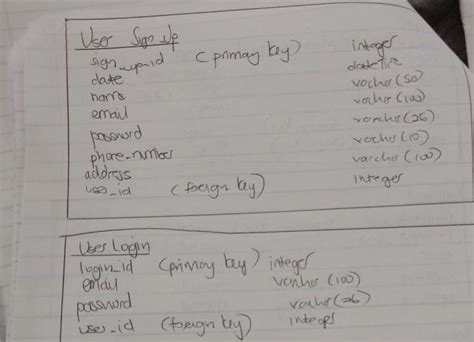 User Sign_Up
sign_up_id (primary key) integer
date datetime
name varchar(50)
email varchar(100)
password varchar(26)
phone_number varchar(10)
address varchar(100)
user_id (foreign key) integer
User Login
login_id (primary key) integer
email varchar(100)
password varchar(26)
user_id (foreign key) integer